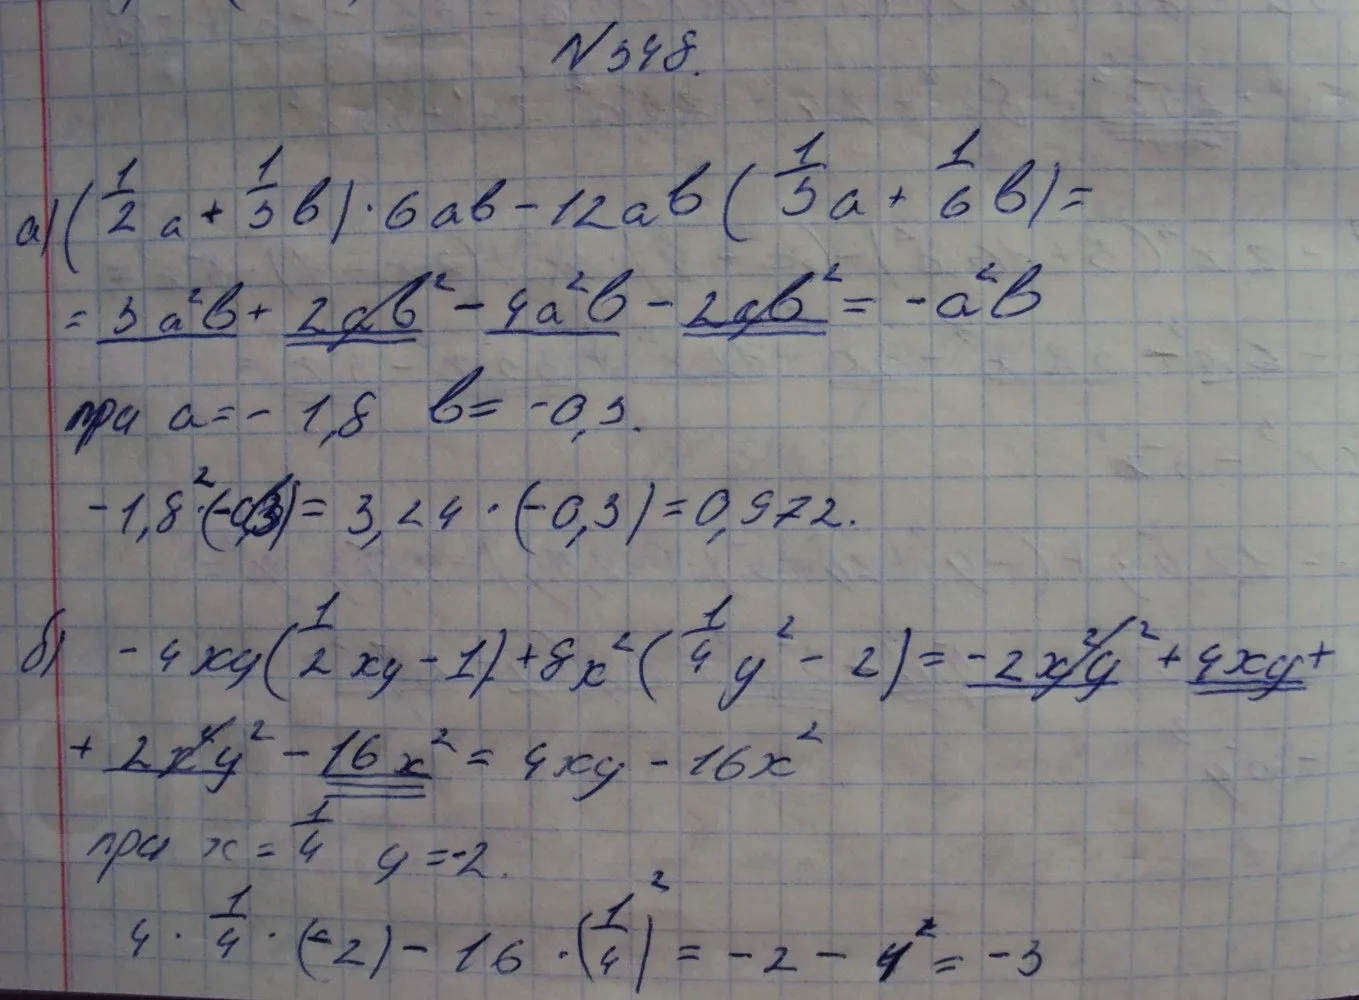 N 348.
а) (1/2 a + 1/3 b) · 6ab - 12ab (1/3 a + 1/6 b) =
= 3a²b + 2ab² - 4a²b - 2ab² = -a²b
при a = - 1,8 b = -0,3.
-1,8² · (-0,3) = 3,24 · (-0,3) = 0,972.
б) - 4xy (1/2 xy - 1) + 8x² (1/4 y² - 2) = -2x²y² + 4xy +
+ 2x²y² - 16x² = 4xy - 16x²
при x = 1/4 y = -2.
4 · 1/4 · (-2) - 16 · (1/4)² = -2 - 1 = -3